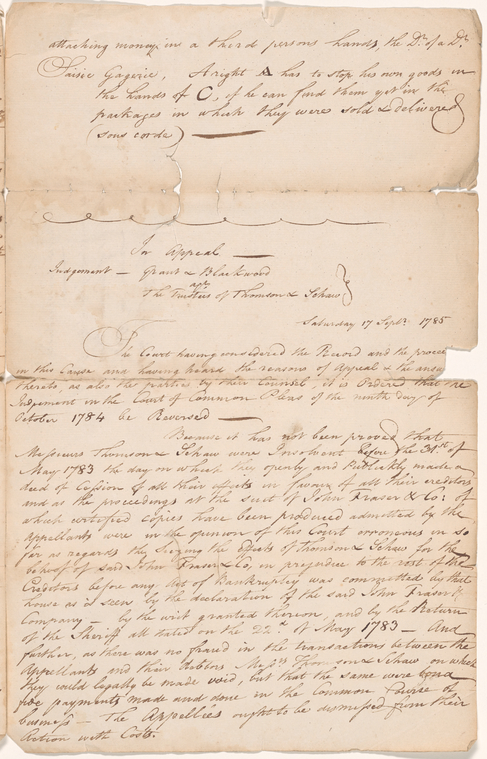 attaching money in a third persons hands, the Dr. of a Dr.
Saisie Gagerie, A right A has to stop his own goods in
the hands of C, if he can find them yet in the
packages in which they were sold & delivered
(sous corde)
In Appeal
Judgement — Grant & Blackwood
agt
The Trustees of Thomson & Schaw
Saturday 17 Septr. 1785
The Court having considered the Record and the procee
in this Cause and having heard the reasons of Appeal & the answ
thereto as also the parties by their Counsel, it is Ordered that the
Judgement in the Court of Common Pleas of the ninth day of
October 1784 be Reversed
Because it has not been proved that
Messieurs Thomson & Schaw were Insolvent before the 31st of
May 1783 the day on which they openly and Publickly made a
deed of Cession of all their effects in favour of all their creditors
and as the proceedings at the suit of John Fraser & Co: of
which certified Copies have been produced admitted by the
Appellants were in the opinion of this Court erroneous in so
far as regards the seizing the effects of Thomson & Schaw for the
behoof of said John Fraser & Co, in prejudice to the rest of the
Creditors before any Act of Bankruptcy was committed by that
house as is seen by the declaration of the said John Fraser &
Company — by the writ granted thereon, and by the Return
of the Sheriff all dated on the of May 1783 — And
further, as there was no fraud in the transactions between the
Appellants and their debtors Messrs Thomson & Schaw on which
they could legally be made void, but that the same were bona
fide payments made and done in the Common Course of
business — The Appellees ought to be dismissed from their
Action with Costs.